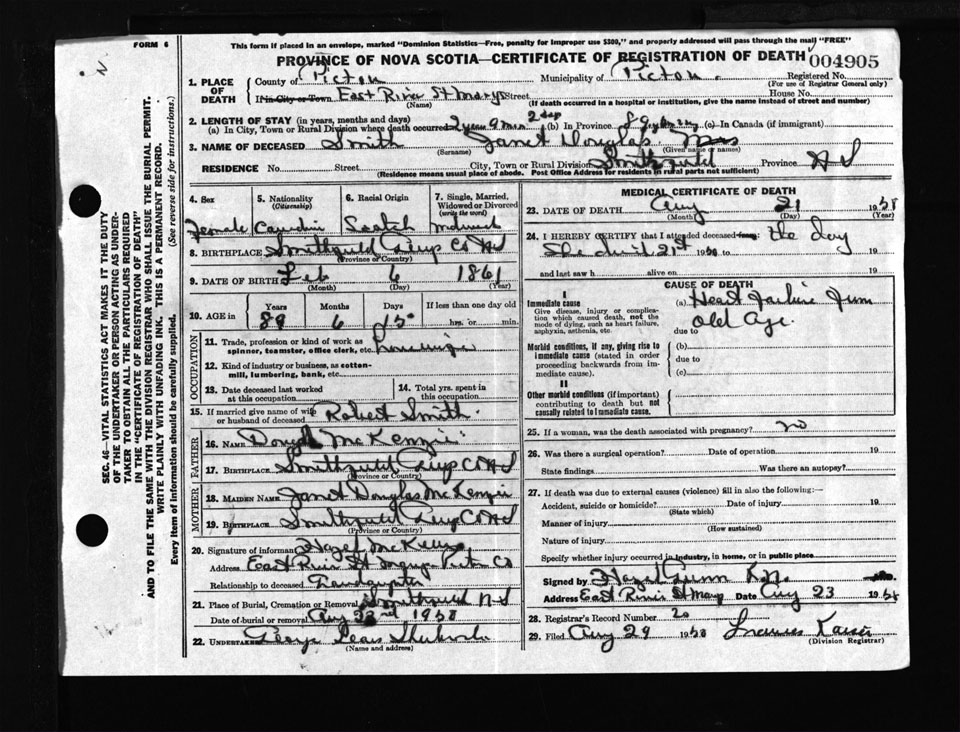 FORM 6
This form if placed in an envelope, marked "Dominion Statistics—Free, penalty for improper use $300," and properly addressed will pass through the mail "FREE"
PROVINCE OF NOVA SCOTIA—CERTIFICATE OF REGISTRATION OF DEATH
004905
SEC. 46—VITAL STATISTICS ACT MAKES IT THE DUTY
OF THE UNDERTAKER OR PERSON ACTING AS UNDER-
TAKER TO OBTAIN ALL THE PARTICULARS REQUIRED
IN THE "CERTIFICATE OF REGISTRATION OF DEATH"
AND TO FILE THE SAME WITH THE DIVISION REGISTRAR WHO SHALL ISSUE THE BURIAL PERMIT.
WRITE PLAINLY WITH UNFADING INK. THIS IS A PERMANENT RECORD.
Every item of information should be carefully supplied. (See reverse side for instructions.)
1. PLACE OF DEATH County of Pictou Municipality of Pictou. Registered No.
(For use of Registrar General only)
If in City or Town East River St Marys Street House No.
(Name) (If death occurred in a hospital or institution, give the name instead of street and number)
2. LENGTH OF STAY (in years, months and days)
(a) In City, Town or Rural Division where death occurred 2 years 9 mon (b) In Province (c) In Canada (if immigrant)
3. NAME OF DECEASED Smith Janet Douglas
(Surname) (Given name or names)
RESIDENCE No. Street City, Town or Rural Division Smithfield Province N S
(Residence means usual place of abode. Post Office Address for residents in rural parts not sufficient)
4. Sex 5. Nationality (Citizenship) 6. Racial Origin 7. Single, Married, Widowed or Divorced (write the word)
Female Scotch
8. BIRTHPLACE Smithfield Guys Co N S
(Province or Country)
9. DATE OF BIRTH Feb 6 1861
(Month) (Day) (Year)
10. AGE in Years Months Days If less than one day old
89 6 15 hrs. or min.
OCCUPATION
11. Trade, profession or kind of work as spinner, teamster, office clerk, etc.
12. Kind of industry or business, as cotton-mill, lumbering, bank, etc.
13. Date deceased last worked at this occupation 14. Total yrs. spent in this occupation
15. If married give name of wife or husband of deceased Robert Smith.
FATHER
16. NAME McKenzie
17. BIRTHPLACE Smithfield Guys Co N S
(Province or Country)
MOTHER
18. MAIDEN NAME Janet Douglas McKenzie
19. BIRTHPLACE Smithfield Guys Co N S
(Province or Country)
20. Signature of informant Hazel
Address East River St Marys Pictou Co
Relationship to deceased
21. Place of Burial, Cremation or Removal Smithfield N S
Date of burial or removal Aug 19
22. UNDERTAKER George
(Name and address)
MEDICAL CERTIFICATE OF DEATH
23. DATE OF DEATH Aug 21 19
(Month) (Day) (Year)
24. I HEREBY CERTIFY that I attended deceased from: the day
She died 21st 19 19
and last saw h alive on 19
CAUSE OF DEATH
I
Immediate cause
Give disease, injury or complication which caused death, not the mode of dying, such as heart failure, asphyxia, asthenia, etc.
(a) Heart failure from
due to Old Age.
Morbid conditions, if any, giving rise to immediate cause (stated in order proceeding backwards from immediate cause).
(b)
due to
(c)
II
Other morbid conditions (if important) contributing to death but not causally related to immediate cause.
25. If a woman, was the death associated with pregnancy? no
26. Was there a surgical operation? Date of operation 19
State findings Was there an autopsy?
27. If death was due to external causes (violence) fill in also the following:—
Accident, suicide or homicide? Date of injury 19
(State which)
Manner of injury
(How sustained)
Nature of injury
Specify whether injury occurred in industry, in home, or in public place
Signed by Hazel Gunn R.N.
Address East River St Marys Date Aug 23 19
28. Registrar's Record Number 20
29. Filed Aug 29 19
(Division Registrar)